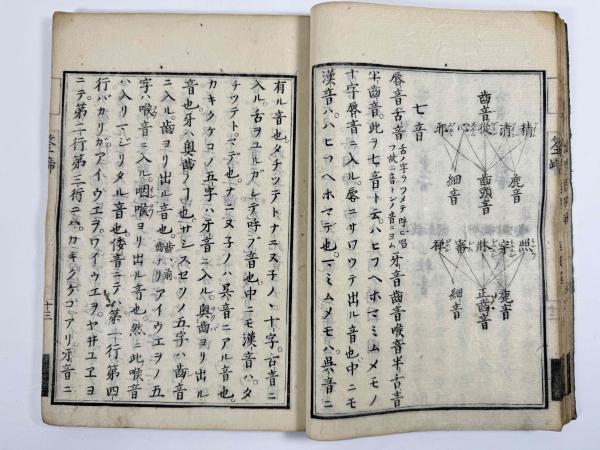 歯音
精 清 從 心 邪
麁音
歯頭音
細音
照 穿 牀 審 禅
麁音
正歯音
細音
七音
唇音舌音 牙音歯音喉音半舌音
半歯音。此ヲ七音ト云。ハヒフヘホマミムメモノ
十字唇音ニ入ル。唇ニサワツテ出ル音也。中ニモ
漢音ハ。ハヒフヘホマデ也。マミムメモハ呉音ニ
有ル音也。タチツテトナニヌ子ノハ。十字。舌音ニ
入ル。舌ヲユルガシテ呼ブ音也。中ニモ漢音ハ。タ
チツテト。マデ也。ナニヌ子ノハ呉音ニアル音也。
カキクケコノ五字ハ牙音ニ入ル。奥歯ヨリ出ル
音也。牙ハ奥歯ノフ也。サシスセソノ五字ハ歯音
ニ入ル。歯ヨリ出ル音也。アイウエヲノ五
字ハ喉音ニ入ル。咽喉ヨリ出ル音也。然ニ此喉音
ハ入リマジリタル音也。倭音ニテハ第一行第四
行バカリガアイウエヲ。ワイウエヲ。ヤヰユヱヨ
ニテ。第二行第三行ニハ。カキクケコアリ。牙音ニ
十三